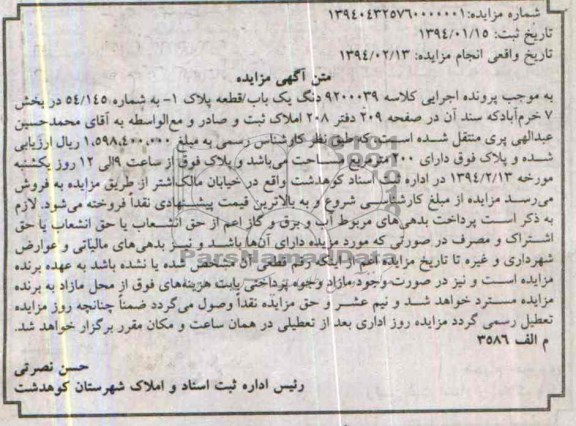 شماره مزایده:۱۳۹۴۰۴۳۲۵۷۶۰۰۰۰۰۰۱
تاریخ ثبت: ۱۳۹٤/۰۱/۱۵
تاریخ واقعی انجام مزایده: ۱۳۹٤/۰۲/۱۳
متن آگهی مزایده
به موجب پرونده اجرایی کلاسه ۹۲۰۰۰۳۹ دنگ یک باب/قطعه پلاک ۱- به شماره ۵٤/۱٤۵ در بخش
۷ خرم‌آبادکه سند آن در صفحه ۲۰۹ دفتر ۲۰۸ املاک ثبت و صادر و مع‌الواسطه به آقای محمدحسین
عبدالهی پری منتقل شده است، که طبق نظر کارشناس رسمی به مبلغ ۱،۵۹۸،٤۰۰،۰۰۰ ریال ارزیابی
شده و پلاک فوق دارای ۲۰۰ مترمربع مساحت می‌باشد و پلاک فوق از ساعت ۹الی ۱۲ روز یکشنبه
مورخه ۱۳۹٤/۲/۱۳ در اداره ثبت اسناد کوهدشت واقع در خیابان مالک‌اشتر از طریق مزایده به فروش
می‌رسد مزایده از مبلغ کارشناسی شروع و به بالاترین قیمت پیشنهادی نقداً فروخته می‌شود. لازم
به ذکر است پرداخت بدهی‌های مربوط آب و برق و گاز اعم از حق انشعاب یا حق انشعاب یا حق
اشتراک و مصرف در صورتی که مورد مزیده دارای آن‌ها باشد و نیز بدهی‌های مالیاتی و عوارض
شهرداری و غیره تا تاریخ مزایده اعم از اینکه رقم قطعی آن مشخص شده یا نشده باشد به عهده برنده
مزایده است و نیز در صورت وجود مازاد وجوه پرداختی بابت هزینه‌های فوق از محل مازاد به برنده
مزایده مسترد خواهد شد و نیم عشر و حق مزایده نقداً وصول می‌گردد ضمناً چنانچه روز مزایده
تعطیل رسمی گردد مزایده روز اداری بعد از تعطیلی در همان ساعت و مکان مقرر برگزار خواهد شد.
م الف ۳۵۸۶
حسن نصرتی
رئیس اداره ثبت اسناد و املاک شهرستان کوهدشت
ParsNamadData